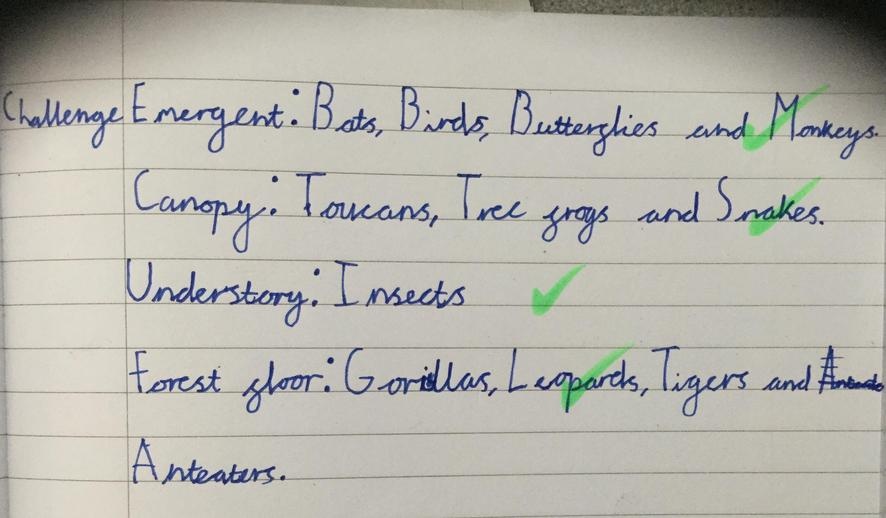 Challenge Emergent: Bats, Birds, Butterflies and Monkeys.
Canopy: Toucans, Tree frogs and Snakes.
Understory: Insects
Forest floor: Gorillas, Leopards, Tigers and
Anteaters.